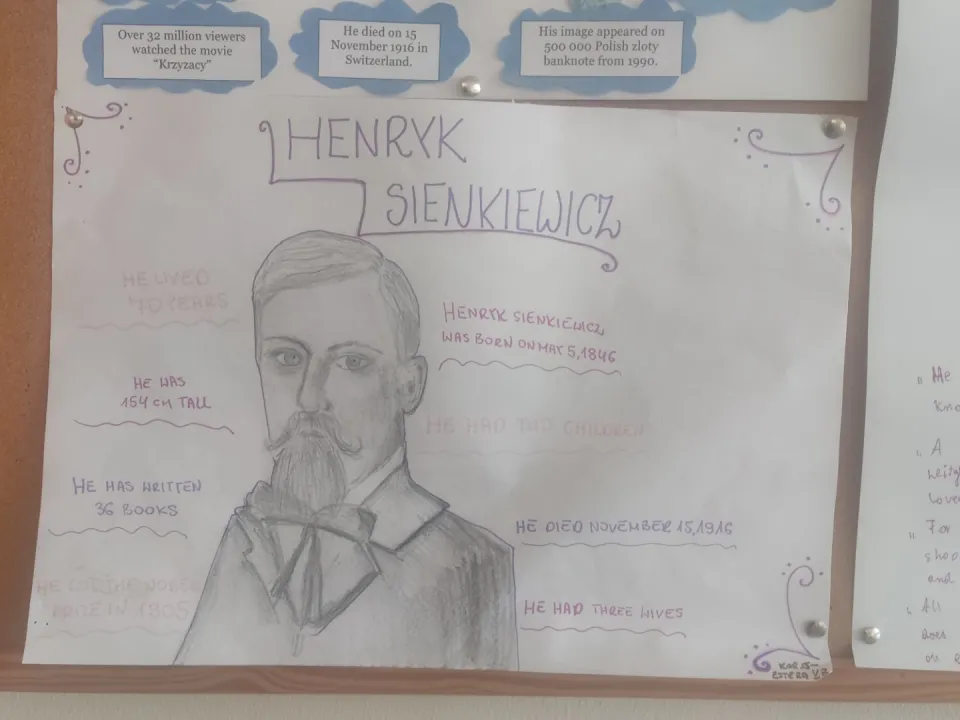 Over 32 million viewers
watched the movie
“Krzyzacy”
He died on 15
November 1916 in
Switzerland.
His image appeared on
500 000 Polish zloty
banknote from 1990.
HENRYK
SIENKIEWICZ
HE LIVED
70 YEARS
HENRYK SIENKIEWICZ
WAS BORN ON MAY 5,1846
HE WAS
154 CM TALL
HE HAD TWO CHILDREN
HE HAS WRITTEN
36 BOOKS
HE DIED NOVEMBER 15,1916
THE NOBEL
IN 1905
HE HAD THREE WIVES
" He
" A
" For
shop
and
" All
does
on